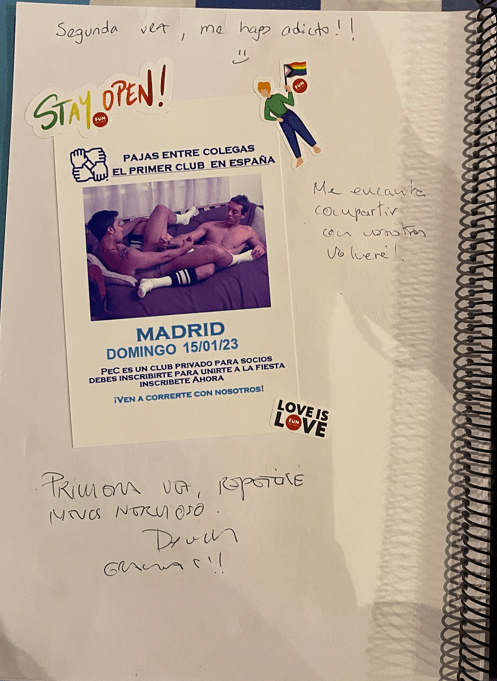 Segunda vez, me hago adicto!!
STAY OPEN!
FUN
FUN
PAJAS ENTRE COLEGAS
EL PRIMER CLUB EN ESPAÑA
Me encanta
compartir
con vosotros
Volveré!
MADRID
DOMINGO 15/01/23
PeC ES UN CLUB PRIVADO PARA SOCIOS
DEBES INSCRIBIRTE PARA UNIRTE A LA FIESTA
INSCRIBETE AHORA
¡VEN A CORRERTE CON NOSOTROS!
LOVE IS
LOVE
FUN
PRIMERA VEZ, REPETIRÉ
MENOS NERVIOSO.
GRACIAS!!